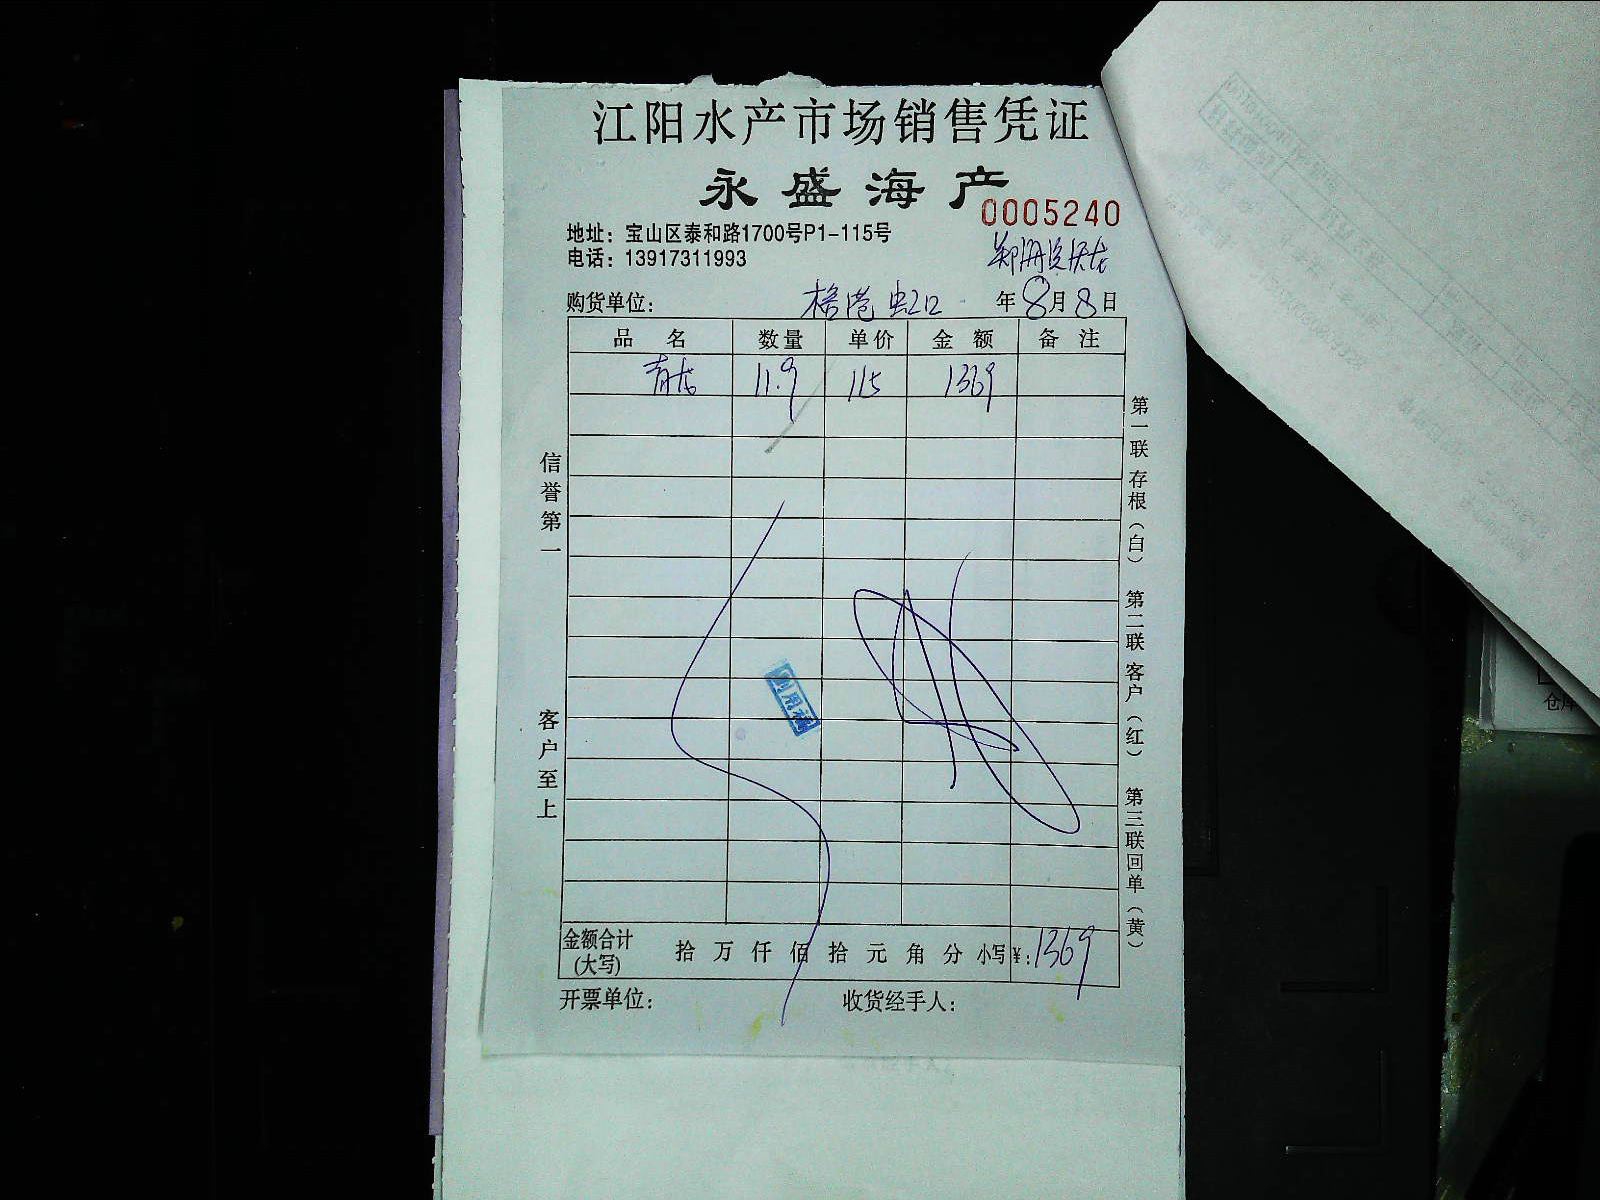 江阳水产市场销售凭证
永盛海产
0005240
地址：宝山区泰和路1700号P1-115号
电话：13917311993
购货单位： 虹口 年8月8日
品 名 数量 单价 金 额 备 注
青龙 11.9 115 1369
信誉第一
客户至上
第一联 存根（白） 第二联 客户（红） 第三联 回单（黄）
金额合计(大写) 拾 万 仟 佰 拾 元 角 分 小写¥：1369
开票单位： 收货经手人：
仓库